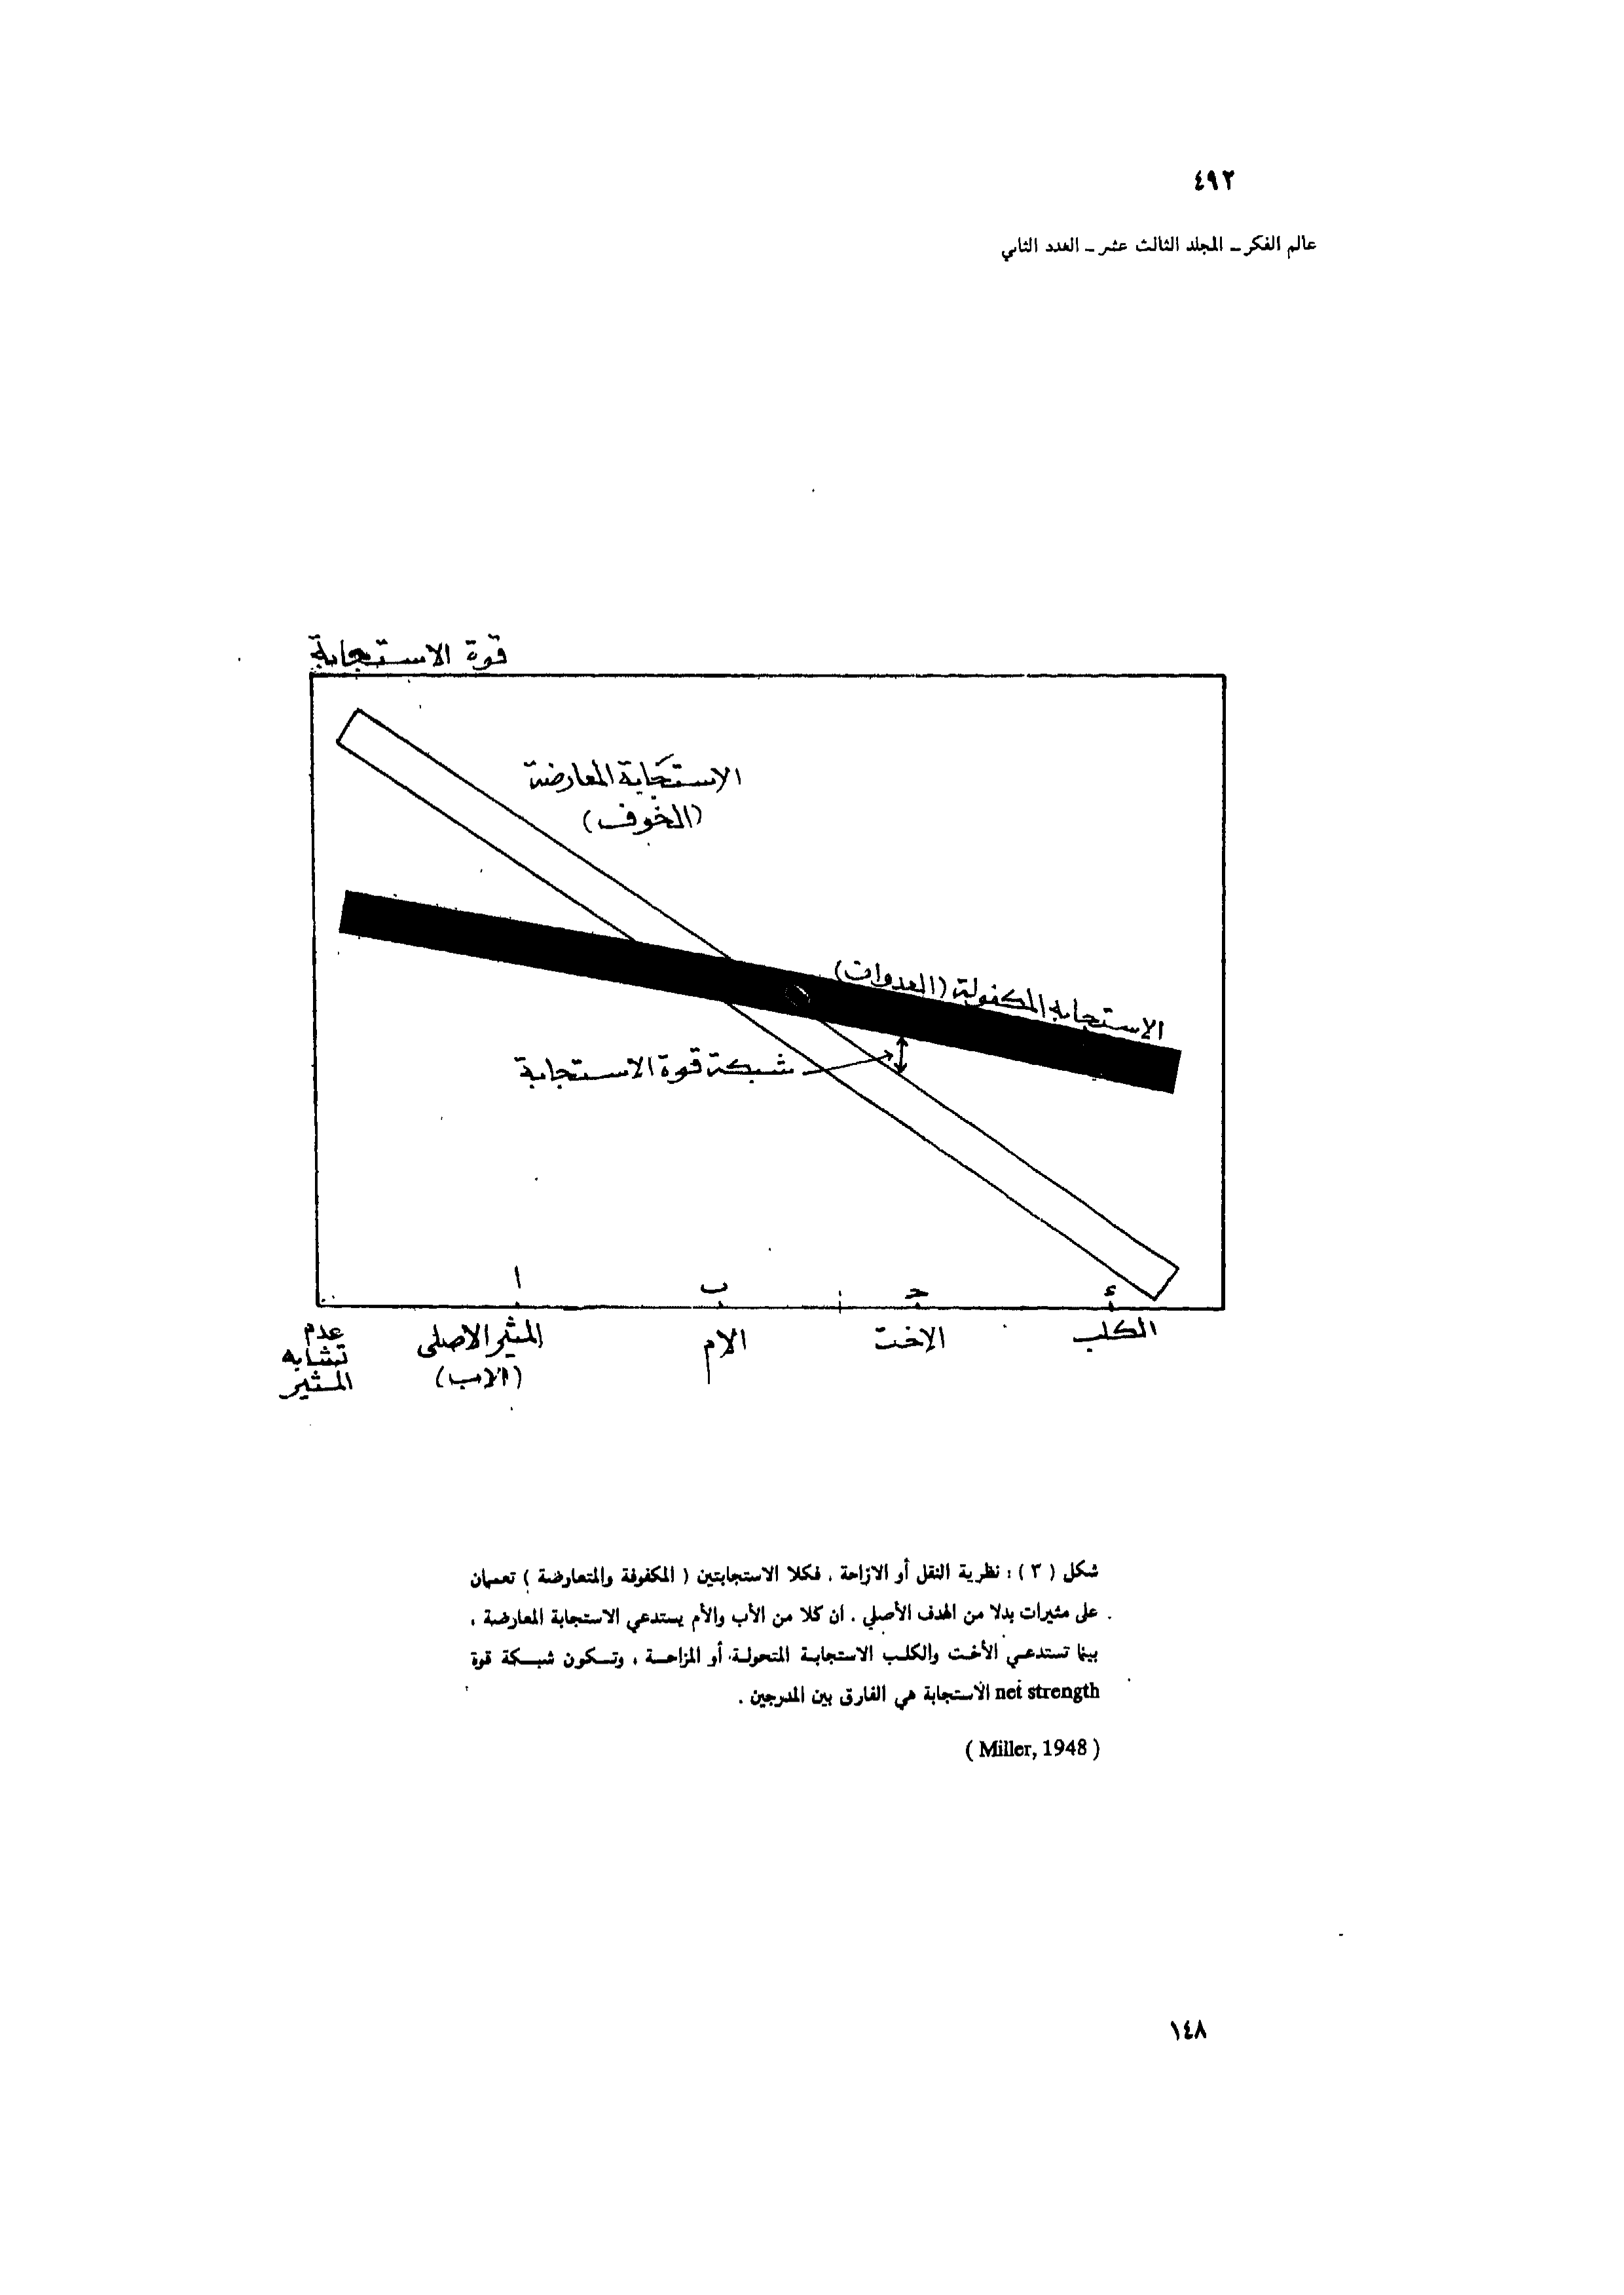 ٤٩٢
عالم الفكر ـ المجلد الثالث عشر ـ العدد الثاني
قوة الاستجابة
الاستجابة المعارضة
(الخوف)
الاستجابة المكفولة (العدوان)
شبكة قوة الاستجابة
ا
ب
حـ
ء
عدم
تشابه
المثير
المثير الاصلى
(الاب)
الام
الاخت
الكلب
شكل ( ٣ ) : نظرية النقل أو الازاحة . فكلا الاستجابتين ( المكفوفة والمتعارضة ) تعممان
على مثيرات بدلا من الهدف الأصلي . ان كلا من الأب والأم يستدعي الاستجابة المعارضة ،
بينما تستدعي الأخت والكلب الاستجابة المتحولة أو المزاحة ، وتكون شبكة قوة
net strength الاستجابة هي الفارق بين المدرجين .
( Miller, 1948 )
١٤٨